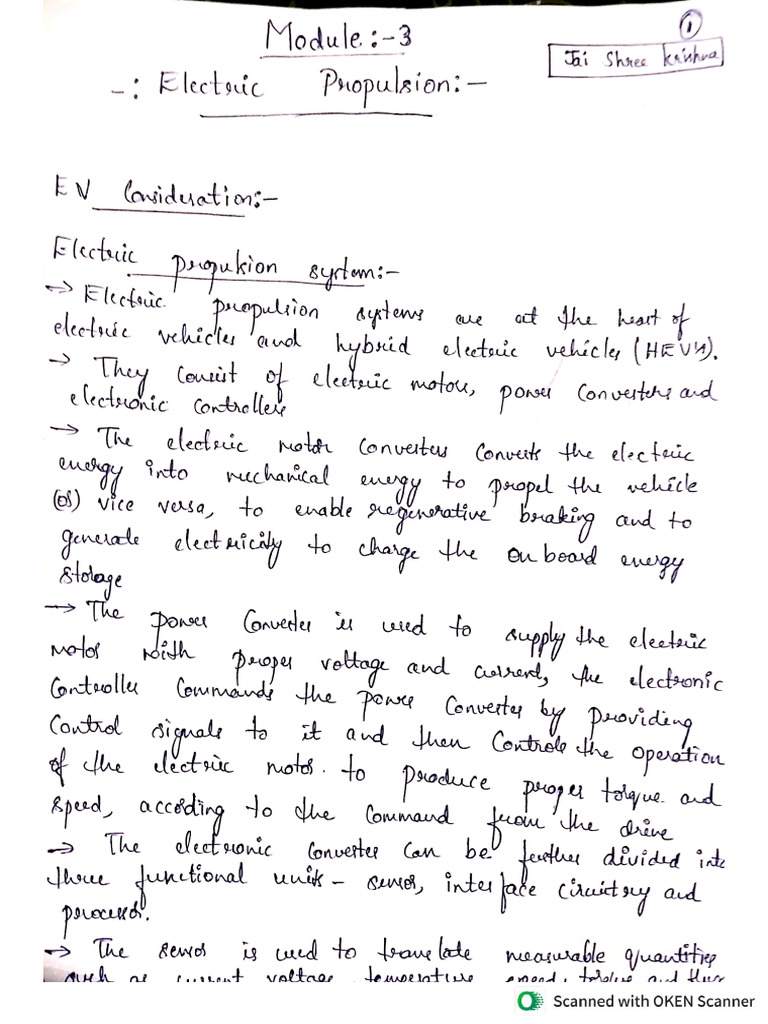 Module:-3
1
Jai Shree Krishna
-: Electric Propulsion:-
EV Consideration:-
Electric propulsion system:-
→ Electric propulsion systems are at the heart of
electric vehicles and hybrid electric vehicles (HEVs).
→ They consist of electric motors, power converters and
electronic controllers
→ The electric motor converters converts the electric
energy into mechanical energy to propel the vehicle
(or) vice versa, to enable regenerative braking and to
generate electricity to charge the on board energy
storage
→ The power converter is used to supply the electric
motor with proper voltage and current, the electronic
Controller commands the power converter by providing
control signals to it and then controls the operation
of the electric motor. to produce proper torque and
speed, according to the command from the drive
→ The electronic converter can be further divided into
three functional units - sensor, interface circuitry and
processor.
→ The sensor is used to translate measurable quantities
such as current voltage temperature speed, torque and flux
Scanned with OKEN Scanner